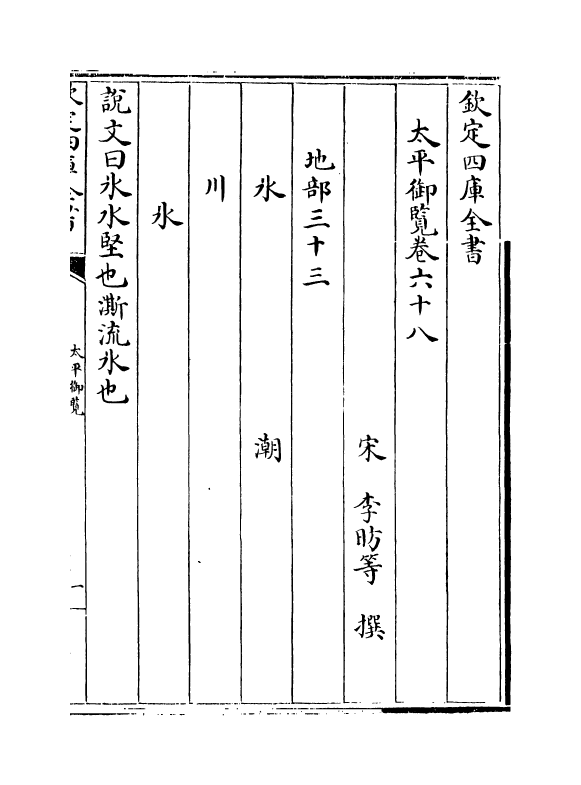 欽定四庫全書
太平御覽卷六十八
宋 李昉等 撰
地部三十三
氷 潮
川
氷
說文曰氷水堅也澌流氷也
太平御覽
一